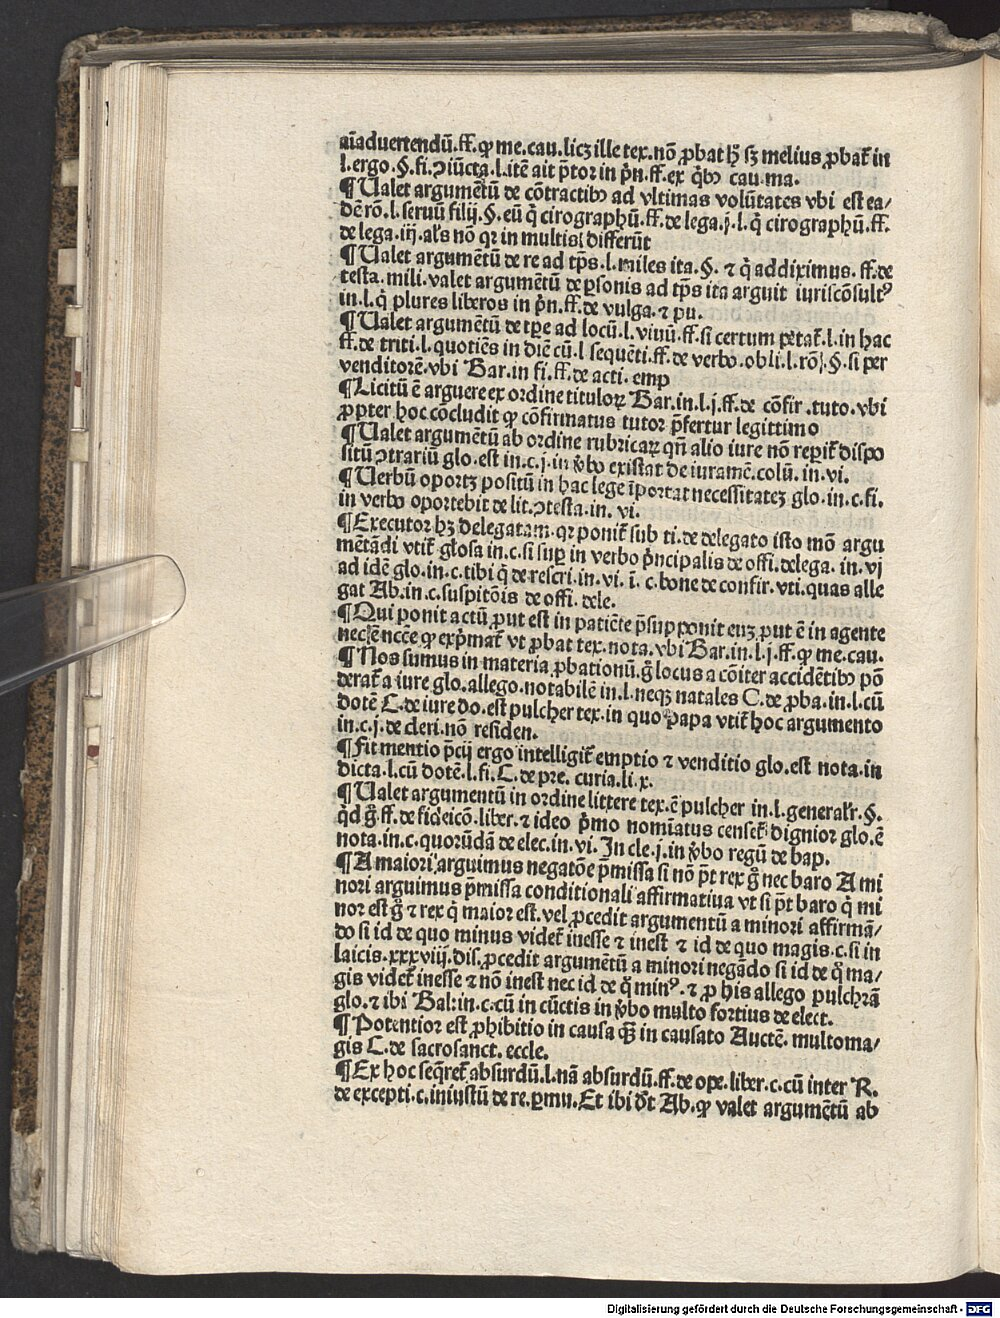 aīaduertendū.ff.ꝙ me.cau.licꝫ ille tex.nō ꝓbat hꝫ sꝫ melius ꝓbat᷑ in
l.ergo.§.fi.ꝯiūcta.l.itē ait p̄tor in p̄n.ff.ex q̄bꝰ cau.ma.
¶Ualet argumētū de cōtractibꝰ ad vltimas volūtates vbi est ea/
dē rō.l.seruū filij.§.eū q̄ cirographū.ff.de lega.j.l.q̄ cirographū.ff.
de lega.iij.als nō qꝛ in multis differūt
¶Ualet argumētū de re ad tp̄s.l.miles ita.§.⁊ q̄ addiximus.ff.de
testa.mili.valet argumētū de ꝑsonis ad tp̄s ita arguit iuriscōsultꝰ
in.l.q̄ plures liberos in p̄n.ff.de vulga.⁊ pu.
¶Ualet argumētū de tꝑe ad locū.l.vinū.ff.si certum petat᷑.l.in hac
ff.de triti.l.quotiēs in diē cū.l sequēti.ff.de verbo.obli.l.rō.§.si per
venditorē.vbi Bar.in fi.ff.de acti.emp
¶Licitū ē arguere ex ordine tituloꝝ Bar.in.l.j.ff.de cōfir.tuto.vbi
ꝓpter hoc cōcludit ꝙ cōfirmatus tutor p̄fertur legittimo
¶Ualet argumētū ab ordine rubricaꝝ qn̄ alio iure nō reperit᷑ dispo
situ ꝯtrariū glo.est in.c.j.in v̄bo existat de iuramē.colū.in.vi.
¶Uerbū oportꝫ positū in hac lege īportat necessitateꝫ glo.in.c.fi.
in verbo oportebit de lit.ꝯtesta.in.vi.
¶Executor hꝫ delegatam.qꝛ ponit᷑ sub ti.de delegato isto mō argu
mētādi vtit᷑ glosa in.c.si suꝑ in verbo p̄ncipalis de offi.delega.in.vj
ad idē glo.in.c.tibi q̄ de rescri.in.vi.ī.c.bone de confir.vti.quas alle
gat Ab.in.c.suspitōis de offi.dele.
¶Qui ponit actū ꝓut est in patiēte p̄supponit euꝫ ꝓut ē in agente
nec ēncce ꝙ exp̄mat᷑ vt ꝓbat tex.nota.vbi Bar.in.l.j.ff.ꝙ me.cau.
¶Nos sumus in materia ꝓbationū.ḡ locus a cōiter accidētibꝰ pō
derat᷑ a iure glo.allego.notabilē in.l.neqꝫ natales C.de ꝓba.in.l.cū
dotē C.de iure do.est pulcher tex.in quo papa vtit᷑ hoc argumento
in.c.j.de cleri.nō residen.
¶Fit mentio p̄cij ergo intelligit᷑ emptio ⁊ venditio glo.est nota.in
dicta.l.cū dotē.l.fi.C.de pre.curia.li.x.
¶Ualet argumentū in ordine littere tex.ē pulcher in.l.generalr̄.§.
q̄d ḡ ff.de fideicō.liber.⁊ ideo p̄mo nomīatus censet᷑ dignior glo.ē
nota.in.c.quorūdā de elec.in.vi. In cle.j.in v̄bo regū de bap.
¶A maiori arguimus negatōe p̄missa si nō p̄t rex ḡ nec baro A mi
nori arguimus p̄missa conditionali affirmatiua vt si p̄t baro q̄ mi
nor est ḡ ⁊ rex q̄ maior est.vel ꝓcedit argumentū a minori affirmā/
do si id de quo minus videt᷑ inesse ⁊ inest ⁊ id de quo magis.c.si in
laicis.xxxviij.dis.ꝓcedit argumētū a minori negādo si id de q̄ ma/
gis videt᷑ inesse ⁊ nō inest nec id de q̄ minꝰ.⁊ ꝓ his allego pulchrā
glo.⁊ ibi Bal:in.c.cū in cūctis in v̄bo multo fortius de elect.
¶Potentior est ꝓhibitio in causa qꝫ in causato Auctē.multoma/
gis C.de sacrosanct.eccle.
¶Ex hoc seq̄ret᷑ absurdū.l.nā absurdū.ff.de ope.liber.c.cū inter R.
de excepti.c.iniustū de re.ꝑmu.Et ibi dt̄ Ab.ꝙ valet argumētū ab
Digitalisierung gefördert durch die Deutsche Forschungsgemeinschaft - DFG